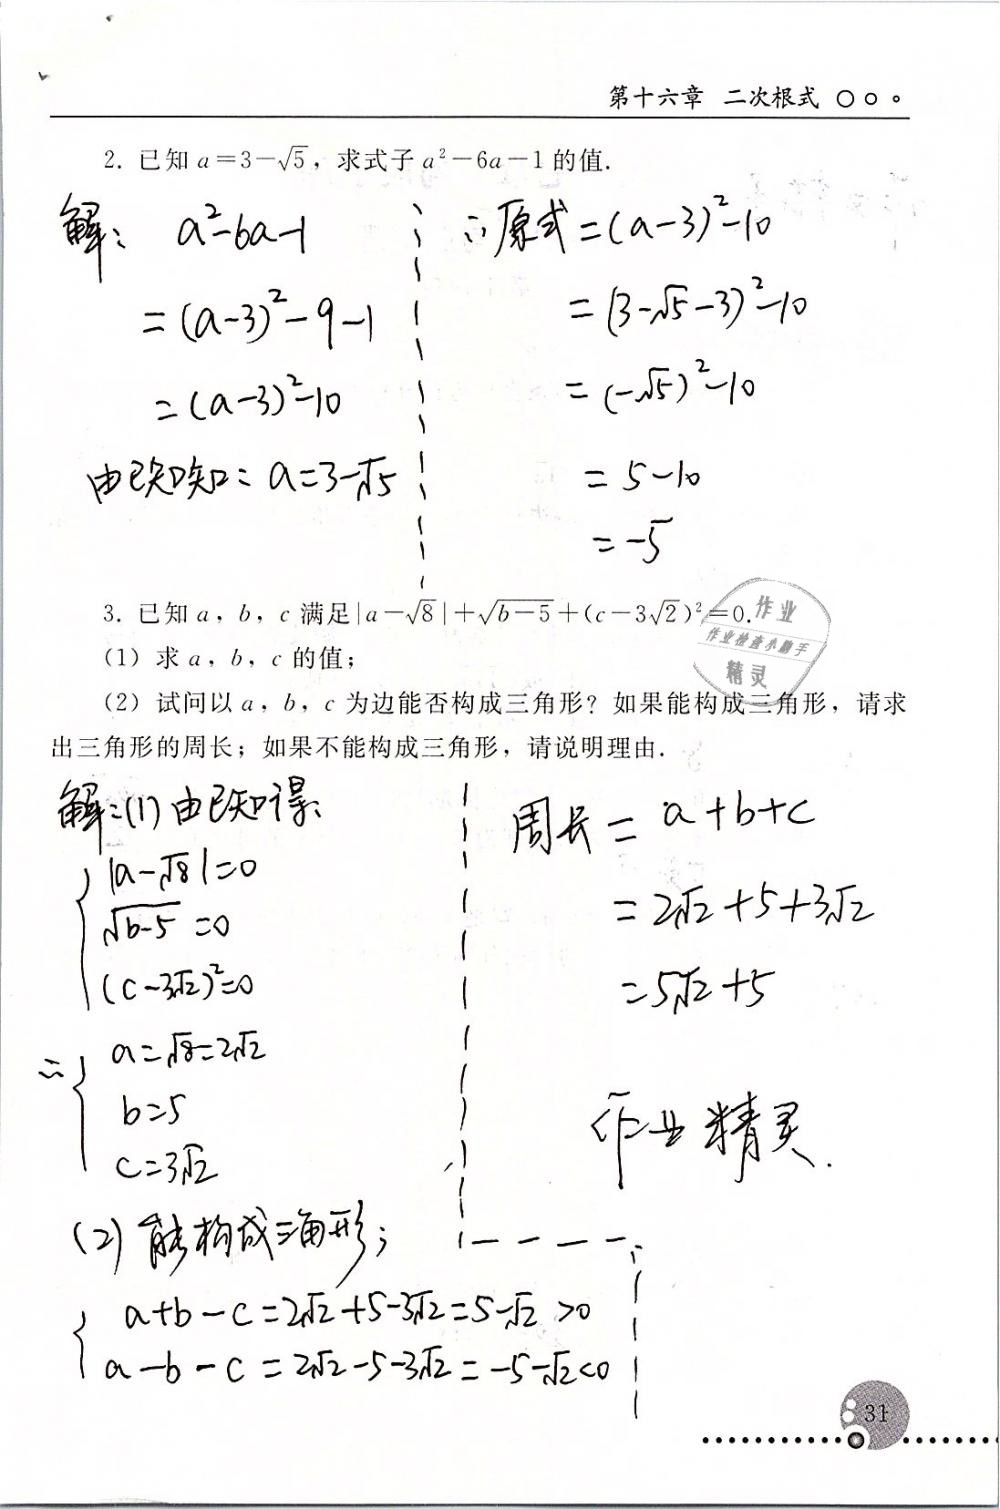 第十六章 二次根式
2. 已知 a=3-√5，求式子 a²-6a-1 的值.
解： a²-6a-1
=(a-3)²-9-1
=(a-3)²-10
由已知知：a=3-√5
∴原式=(a-3)²-10
=(3-√5-3)²-10
=(-√5)²-10
=5-10
=-5
3. 已知 a，b，c 满足|a-√8|+√(b-5)+(c-3√2)²=0.
(1) 求 a，b，c 的值；
(2) 试问以 a，b，c 为边能否构成三角形？如果能构成三角形，请求
出三角形的周长；如果不能构成三角形，请说明理由.
作业
作业检查小助手
精灵
解：(1)由已知得：
|a-√8|=0
√(b-5)=0
(c-3√2)²=0
∴ a=√8=2√2
b=5
c=3√2
(2)能构成三角形；
a+b-c=2√2+5-3√2=5-√2>0
a-b-c=2√2-5-3√2=-5-√2<0
周长=a+b+c
=2√2+5+3√2
=5√2+5
作业精灵.
31